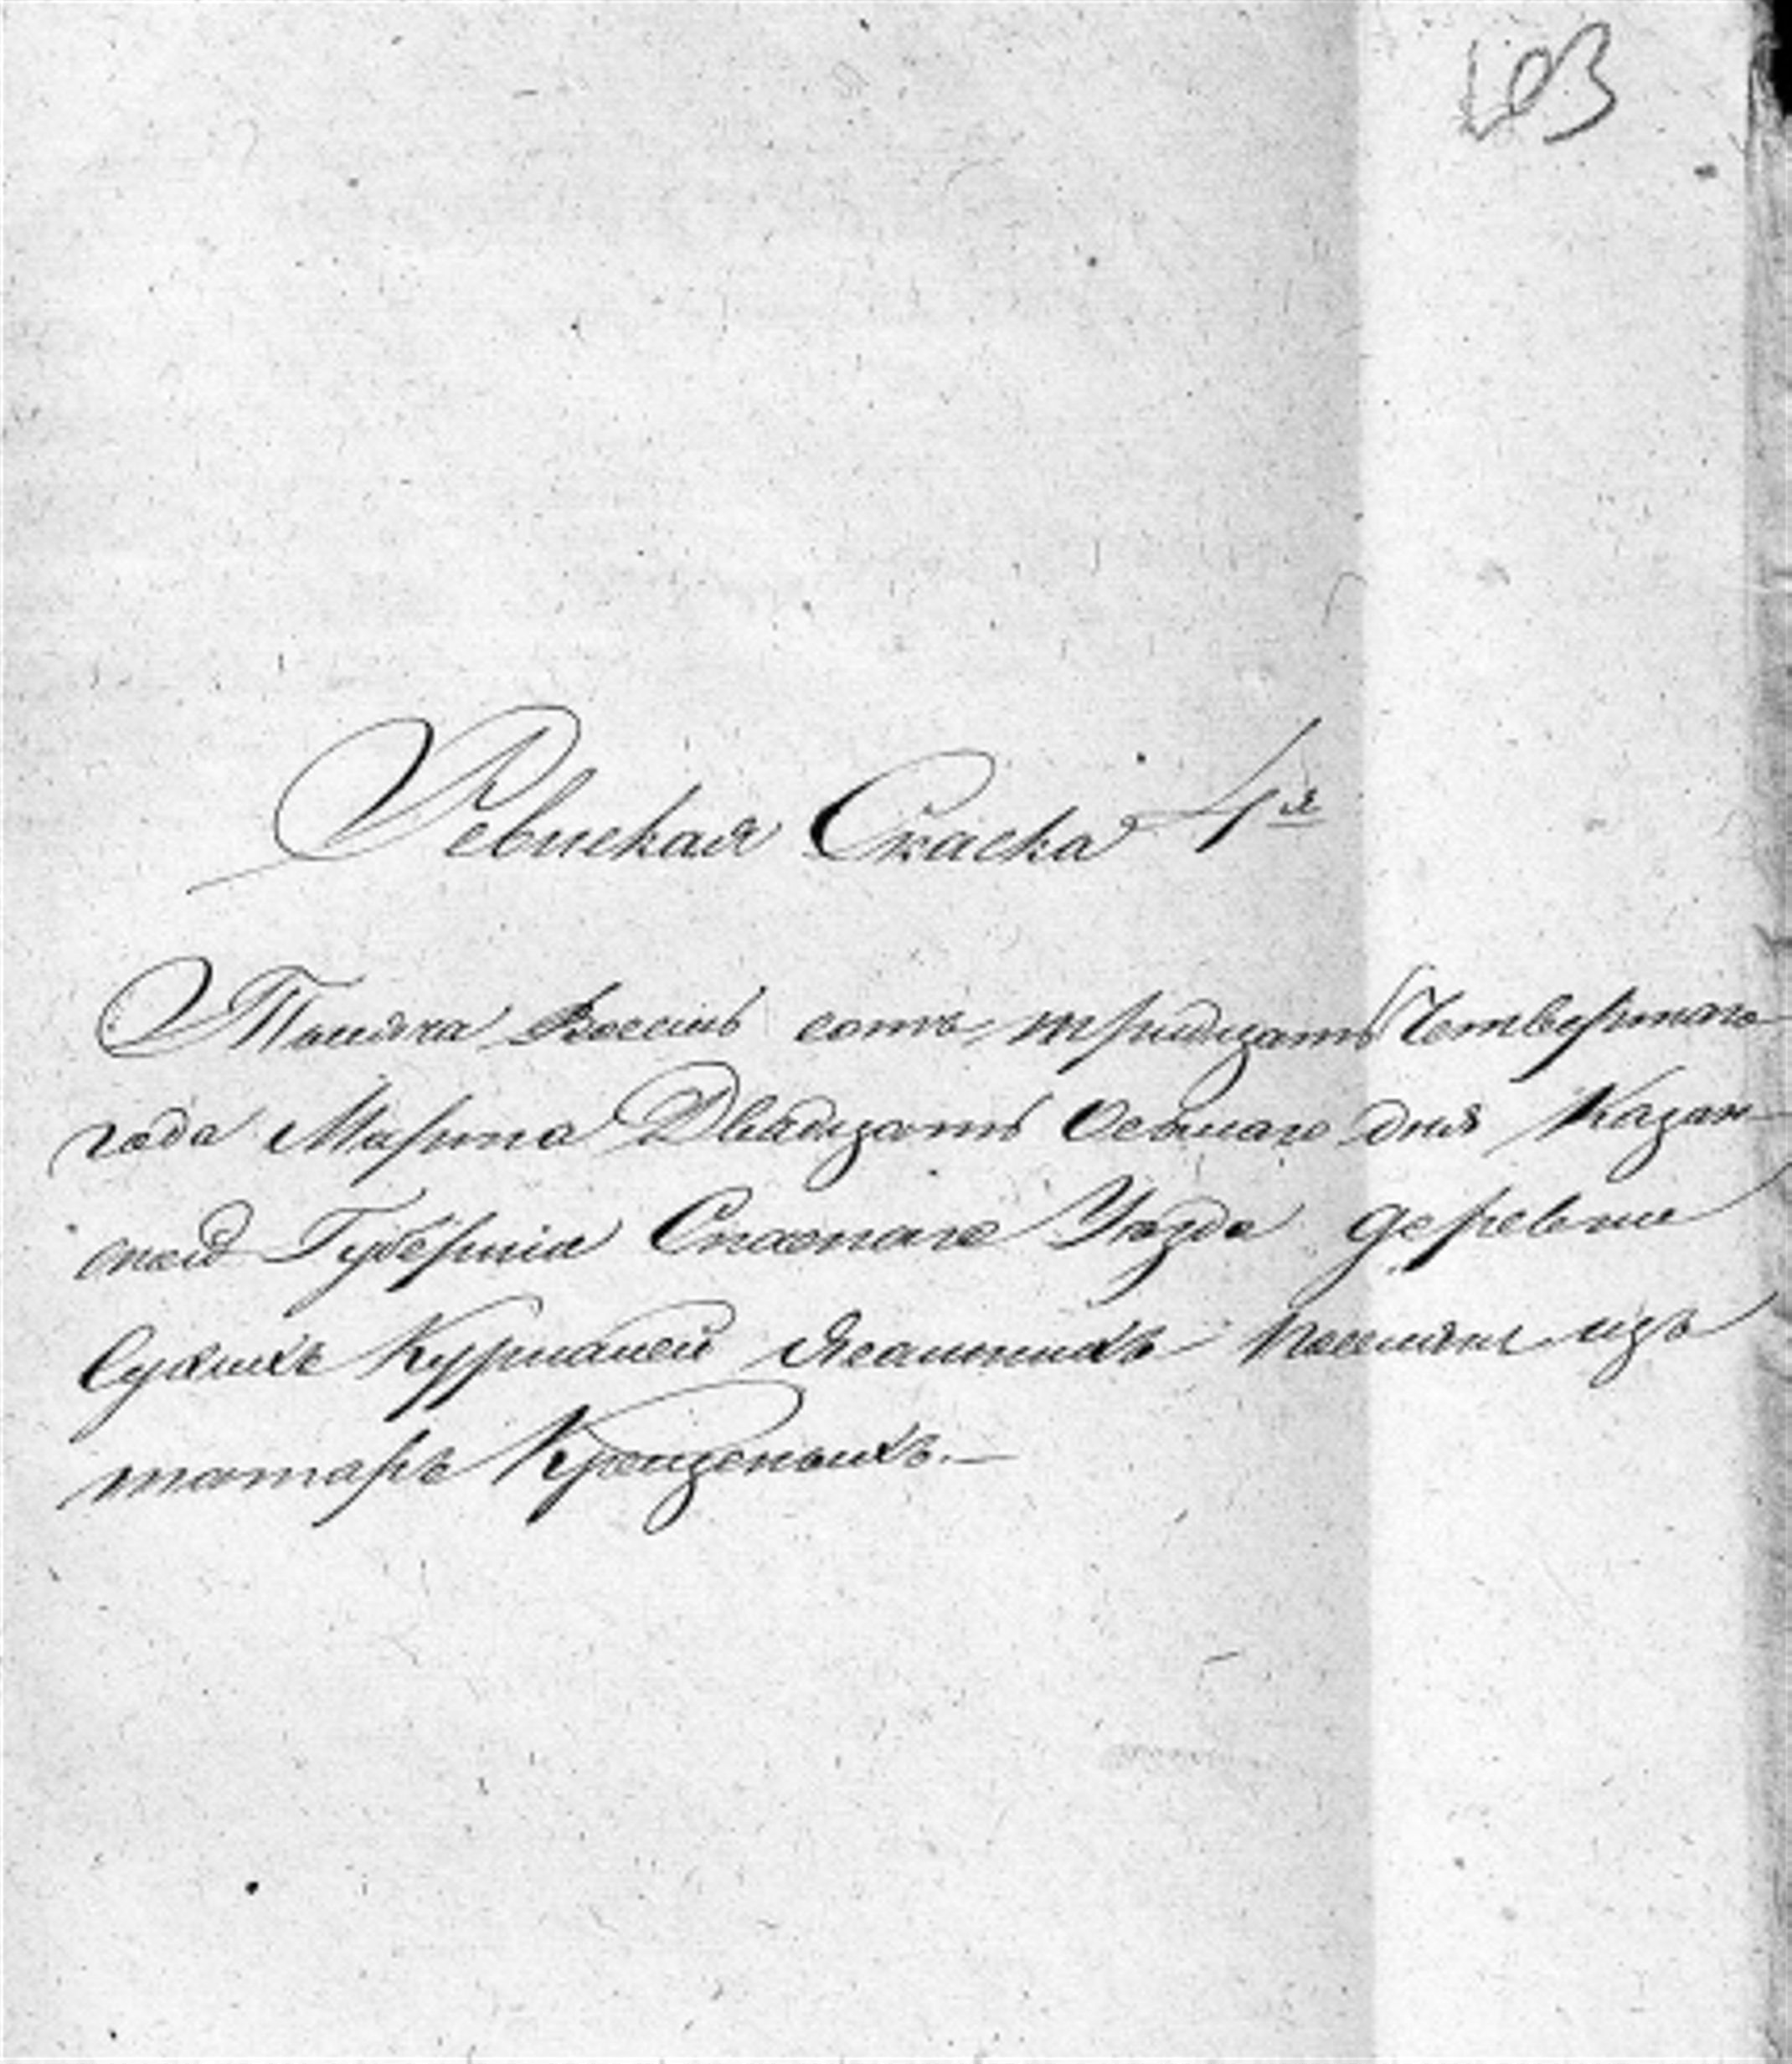 103
Ревиская Скаска 1я
Тысяча Восемь сотъ тридцать Четвертаго
года Марта Двадцать Осьмаго дня Казан-
ской Губерніи Спаскаго Уезда деревни
Сухихъ Курналей Ясашныхъ поселянъ изъ
татаръ Крещеныхъ.—